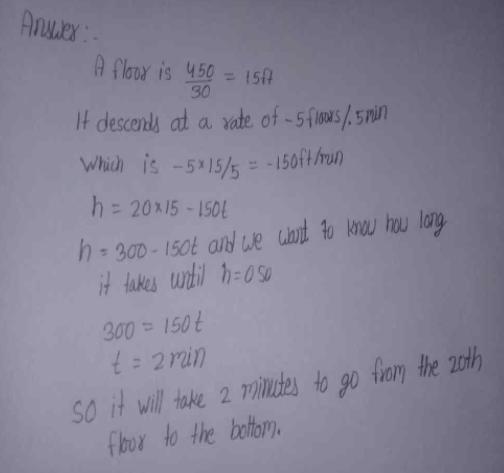 Answer :-
A floor is 450/30 = 15ft
It descends at a rate of -5floors/.5min
Which is -5*15/5 = -150ft/min
h = 20x15 - 150t
h = 300 - 150t and we want to know how long
it takes until h=0 so
300 = 150t
t = 2 min
So it will take 2 minutes to go from the 20th
floor to the bottom.